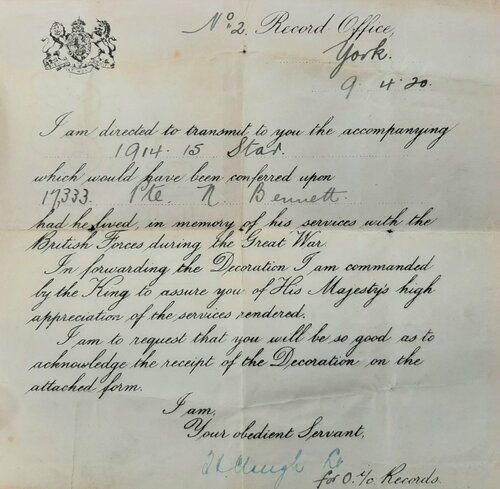 No. 2. Record Office,
York.
9. 4. 20.
I am directed to transmit to you the accompanying
1914. 15 Star.
which would have been conferred upon
17,333. Pte N Bennett.
had he lived, in memory of his services with the
British Forces during the Great War.
In forwarding the Decoration I am commanded
by the King to assure you of His Majesty's high
appreciation of the services rendered.
I am to request that you will be so good as to
acknowledge the receipt of the Decoration on the
attached form.
I am,
Your obedient Servant,
for O. i/c Records.